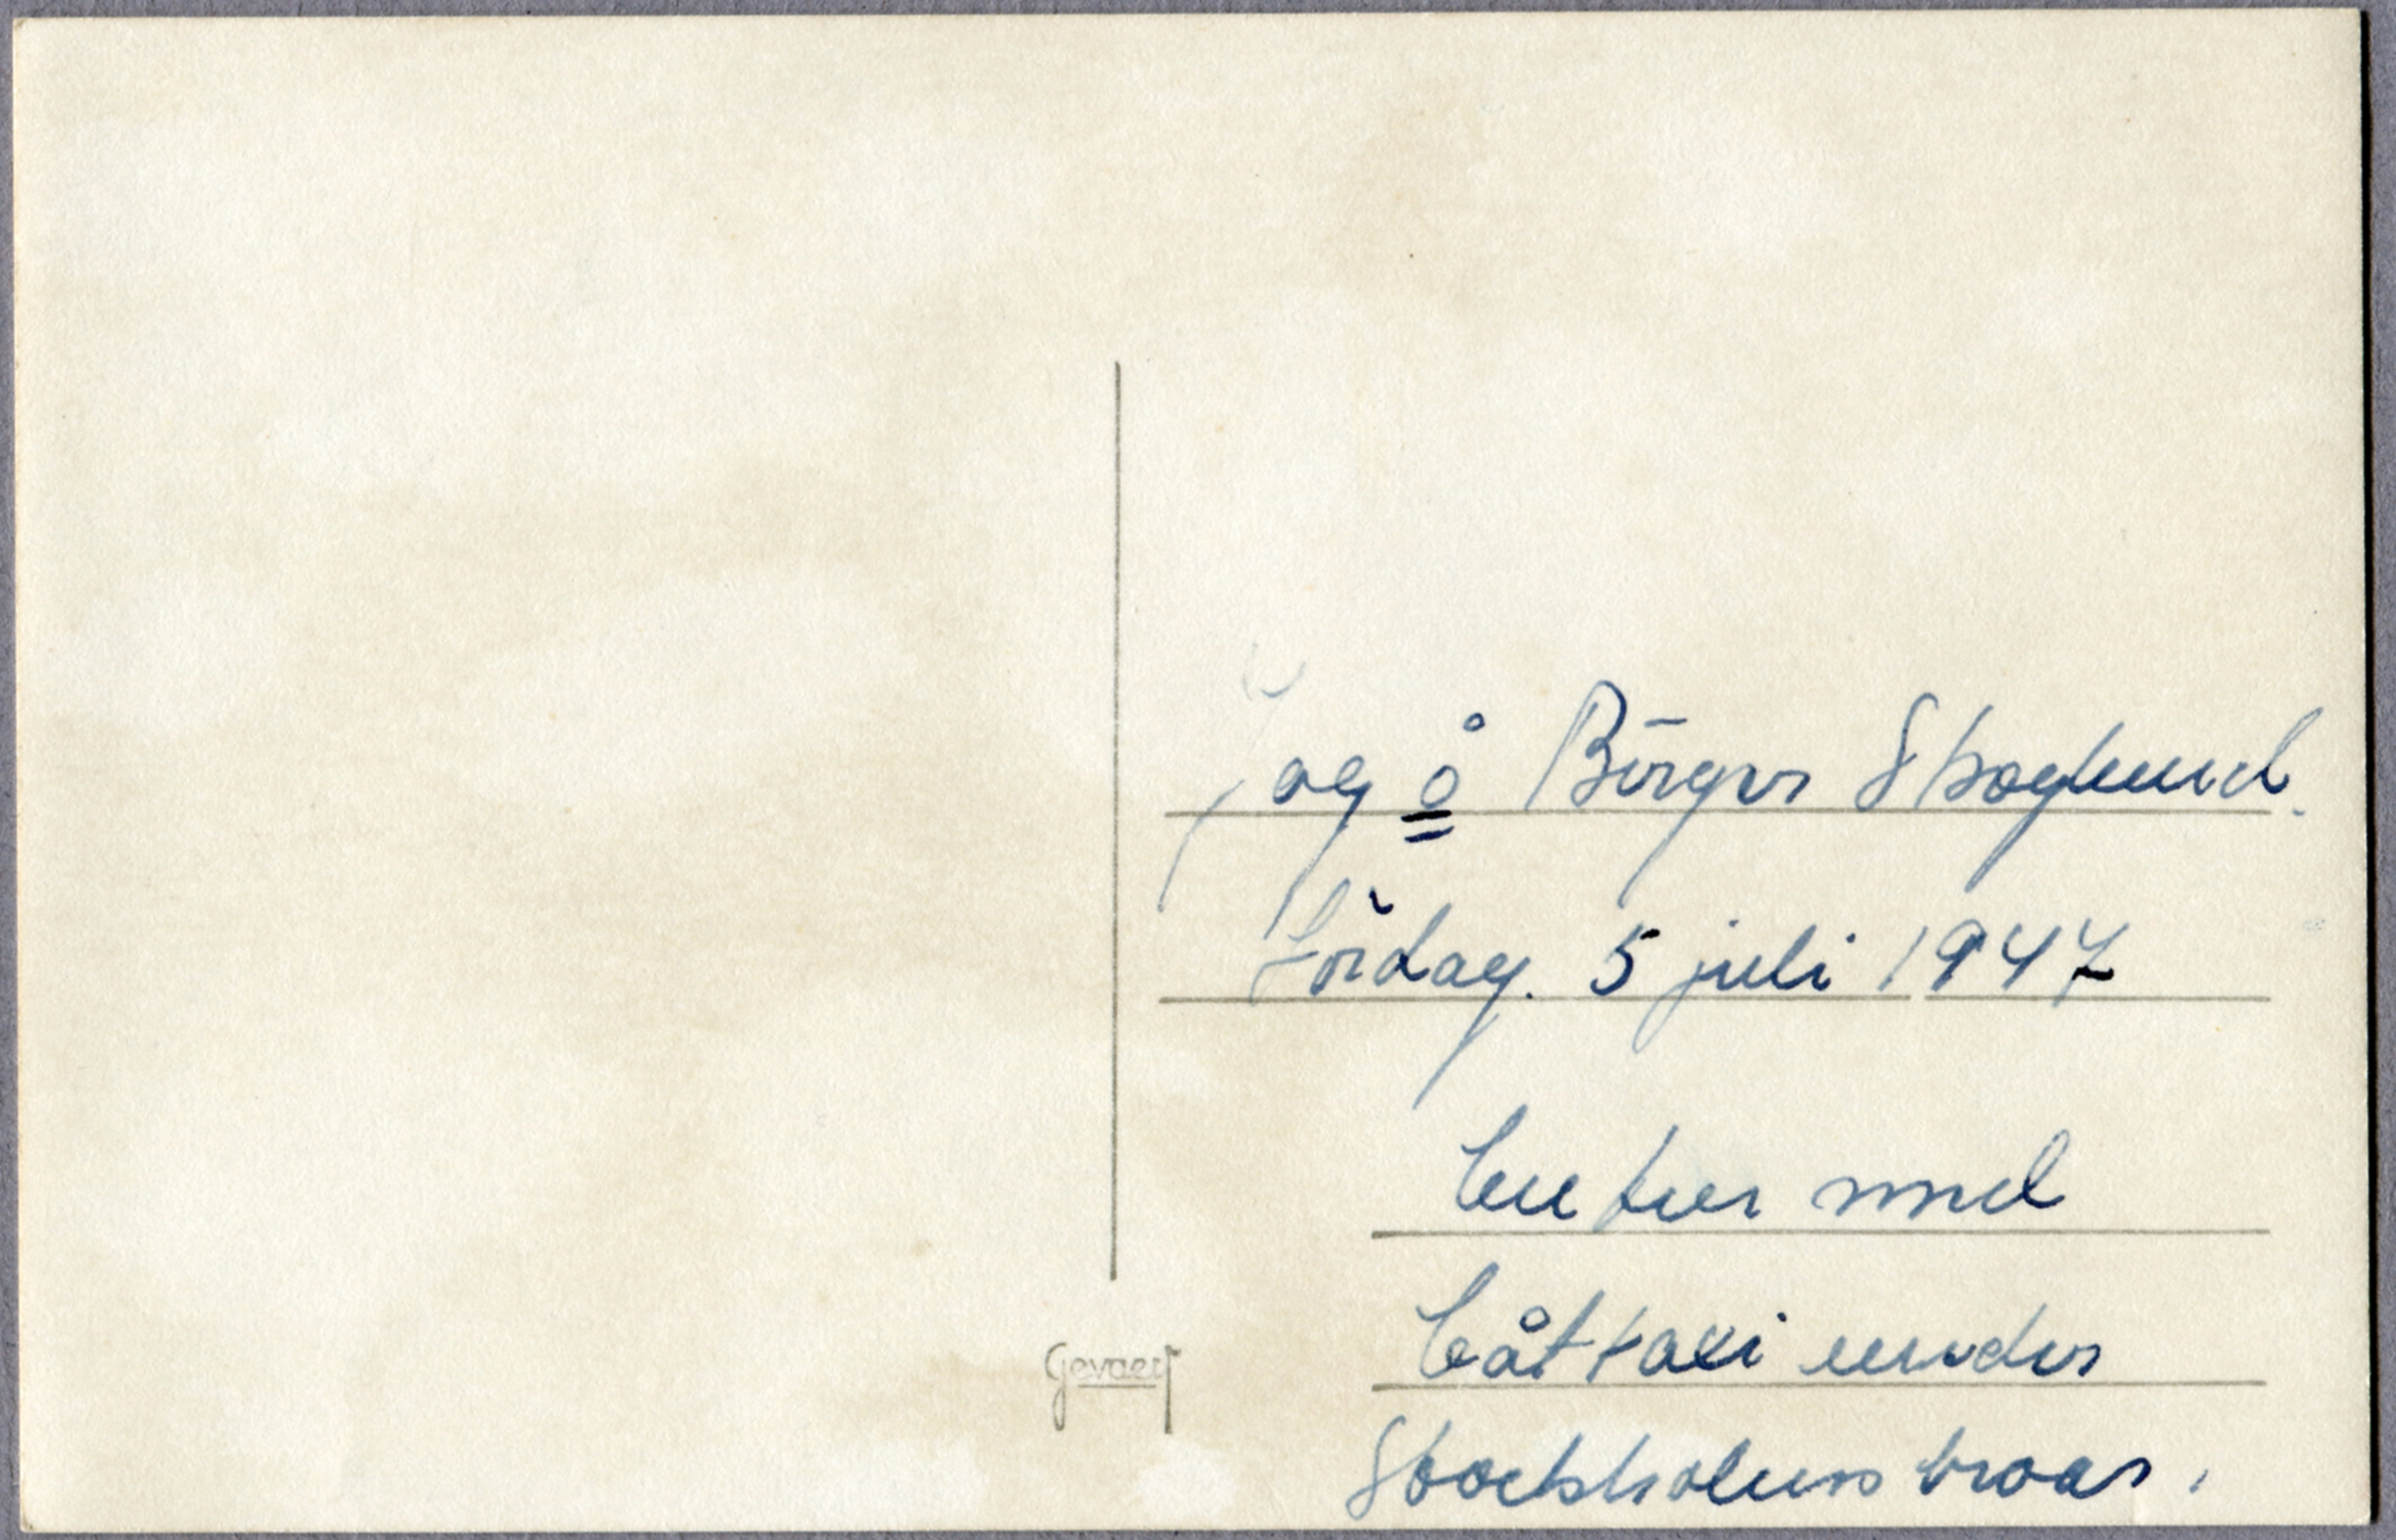 Jag å Börger Skoglund.
Lördag. 5 juli 1947
en tur med
båttaxi under
Stockholms broar.
Gevaert